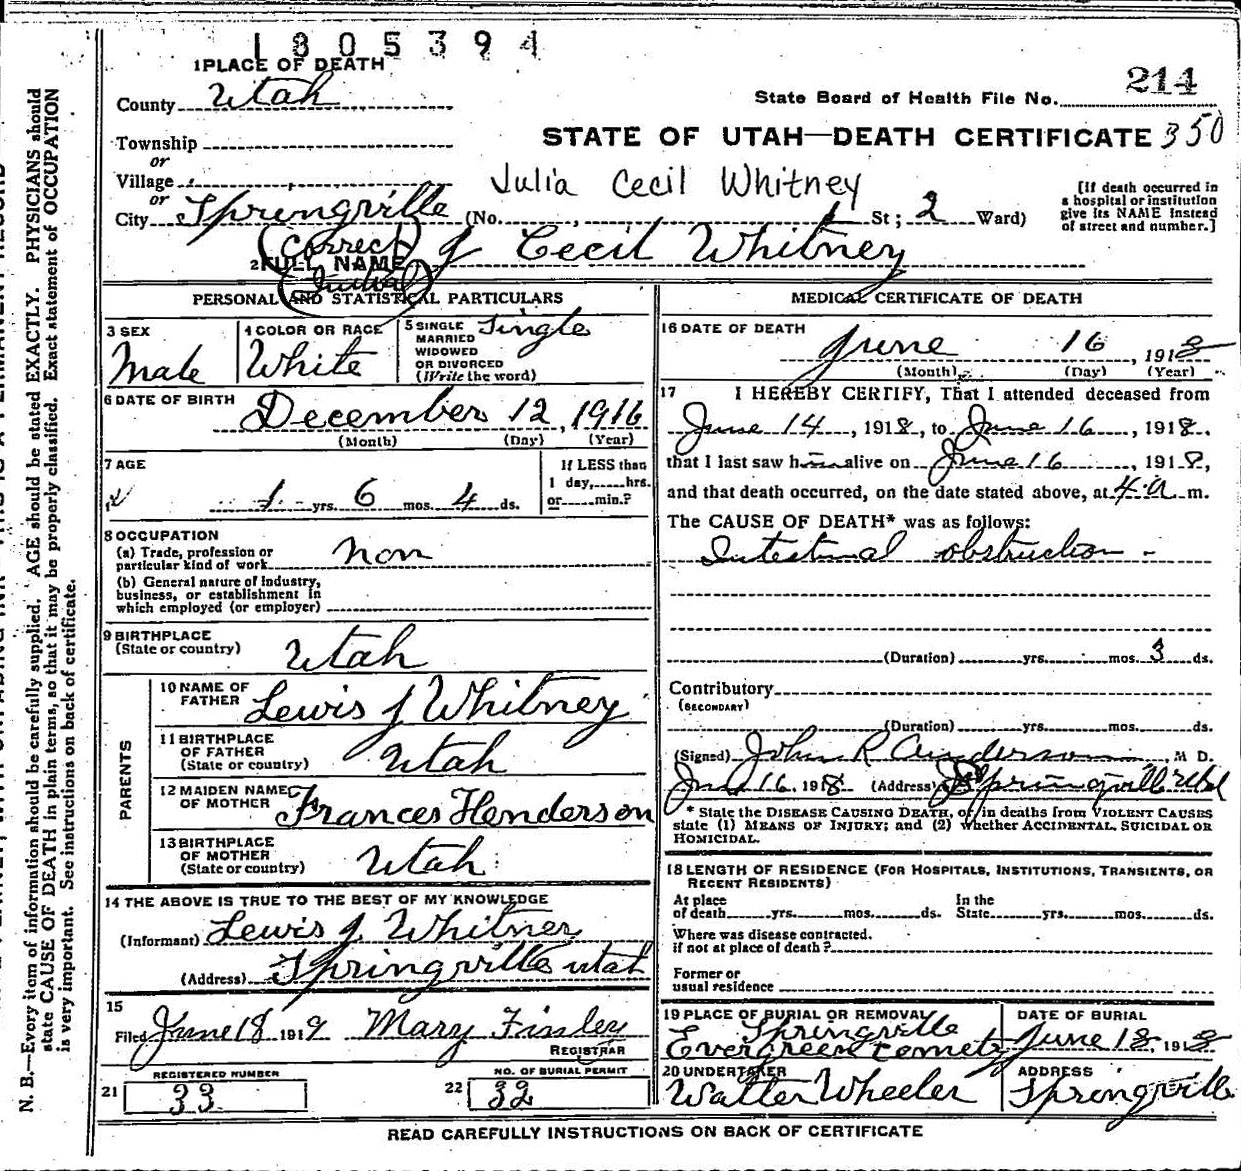 1805394
1 PLACE OF DEATH
County Utah
214
State Board of Health File No.
Township
STATE OF UTAH—DEATH CERTIFICATE 350
or
Village
Julia Cecil Whitney
or
City Springville (No. St; 2 Ward)
[If death occurred in
a hospital or institution
give its NAME instead
of street and number.]
(Correct
2 FULL NAME J Cecil Whitney
Initial)
PERSONAL AND STATISTICAL PARTICULARS
3 SEX
Male
4 COLOR OR RACE
White
5 SINGLE
MARRIED
WIDOWED
OR DIVORCED
(Write the word)
Single
6 DATE OF BIRTH
December 12, 1916
(Month) (Day) (Year)
7 AGE
1 yrs. 6 mos. 4 ds.
If LESS than
1 day, hrs.
or min.?
8 OCCUPATION
(a) Trade, profession or
particular kind of work non
(b) General nature of industry,
business, or establishment in
which employed (or employer)
9 BIRTHPLACE
(State or country) Utah
PARENTS
10 NAME OF
FATHER Lewis J Whitney
11 BIRTHPLACE
OF FATHER
(State or country) Utah
12 MAIDEN NAME
OF MOTHER Frances Henderson
13 BIRTHPLACE
OF MOTHER
(State or country) Utah
14 THE ABOVE IS TRUE TO THE BEST OF MY KNOWLEDGE
(Informant) Lewis J. Whitney
(Address) Springville utah
15
Filed June 18 1919 Mary Finley
REGISTRAR
REGISTERED NUMBER
21 33
NO. OF BURIAL PERMIT
22 32
MEDICAL CERTIFICATE OF DEATH
16 DATE OF DEATH
June 16, 1918
(Month) (Day) (Year)
17 I HEREBY CERTIFY, That I attended deceased from
June 14, 1918, to June 16, 1918,
that I last saw him alive on June 16, 1918,
and that death occurred, on the date stated above, at 4 a m.
The CAUSE OF DEATH* was as follows:
Intestinal obstruction -
(Duration) yrs. mos. 3 ds.
Contributory
(SECONDARY)
(Duration) yrs. mos. ds.
(Signed) John R Anderson, M D.
16, 1918 (Address) Springville Utah
* State the DISEASE CAUSING DEATH, or in deaths from VIOLENT CAUSES
state (1) MEANS OF INJURY; and (2) whether ACCIDENTAL, SUICIDAL OR
HOMICIDAL.
18 LENGTH OF RESIDENCE (FOR HOSPITALS, INSTITUTIONS, TRANSIENTS, OR
RECENT RESIDENTS)
At place
of death yrs. mos. ds.
In the
State yrs. mos. ds.
Where was disease contracted.
if not at place of death?
Former or
usual residence
19 PLACE OF BURIAL OR REMOVAL
Springville
Evergreen Cemetery
DATE OF BURIAL
June 18, 1918
20 UNDERTAKER
Walter Wheeler
ADDRESS
Springville
READ CAREFULLY INSTRUCTIONS ON BACK OF CERTIFICATE
N. B.—Every item of information should be carefully supplied. AGE should be stated EXACTLY. PHYSICIANS should
state CAUSE OF DEATH in plain terms, so that it may be properly classified. Exact statement of OCCUPATION
is very important. See instructions on back of certificate.